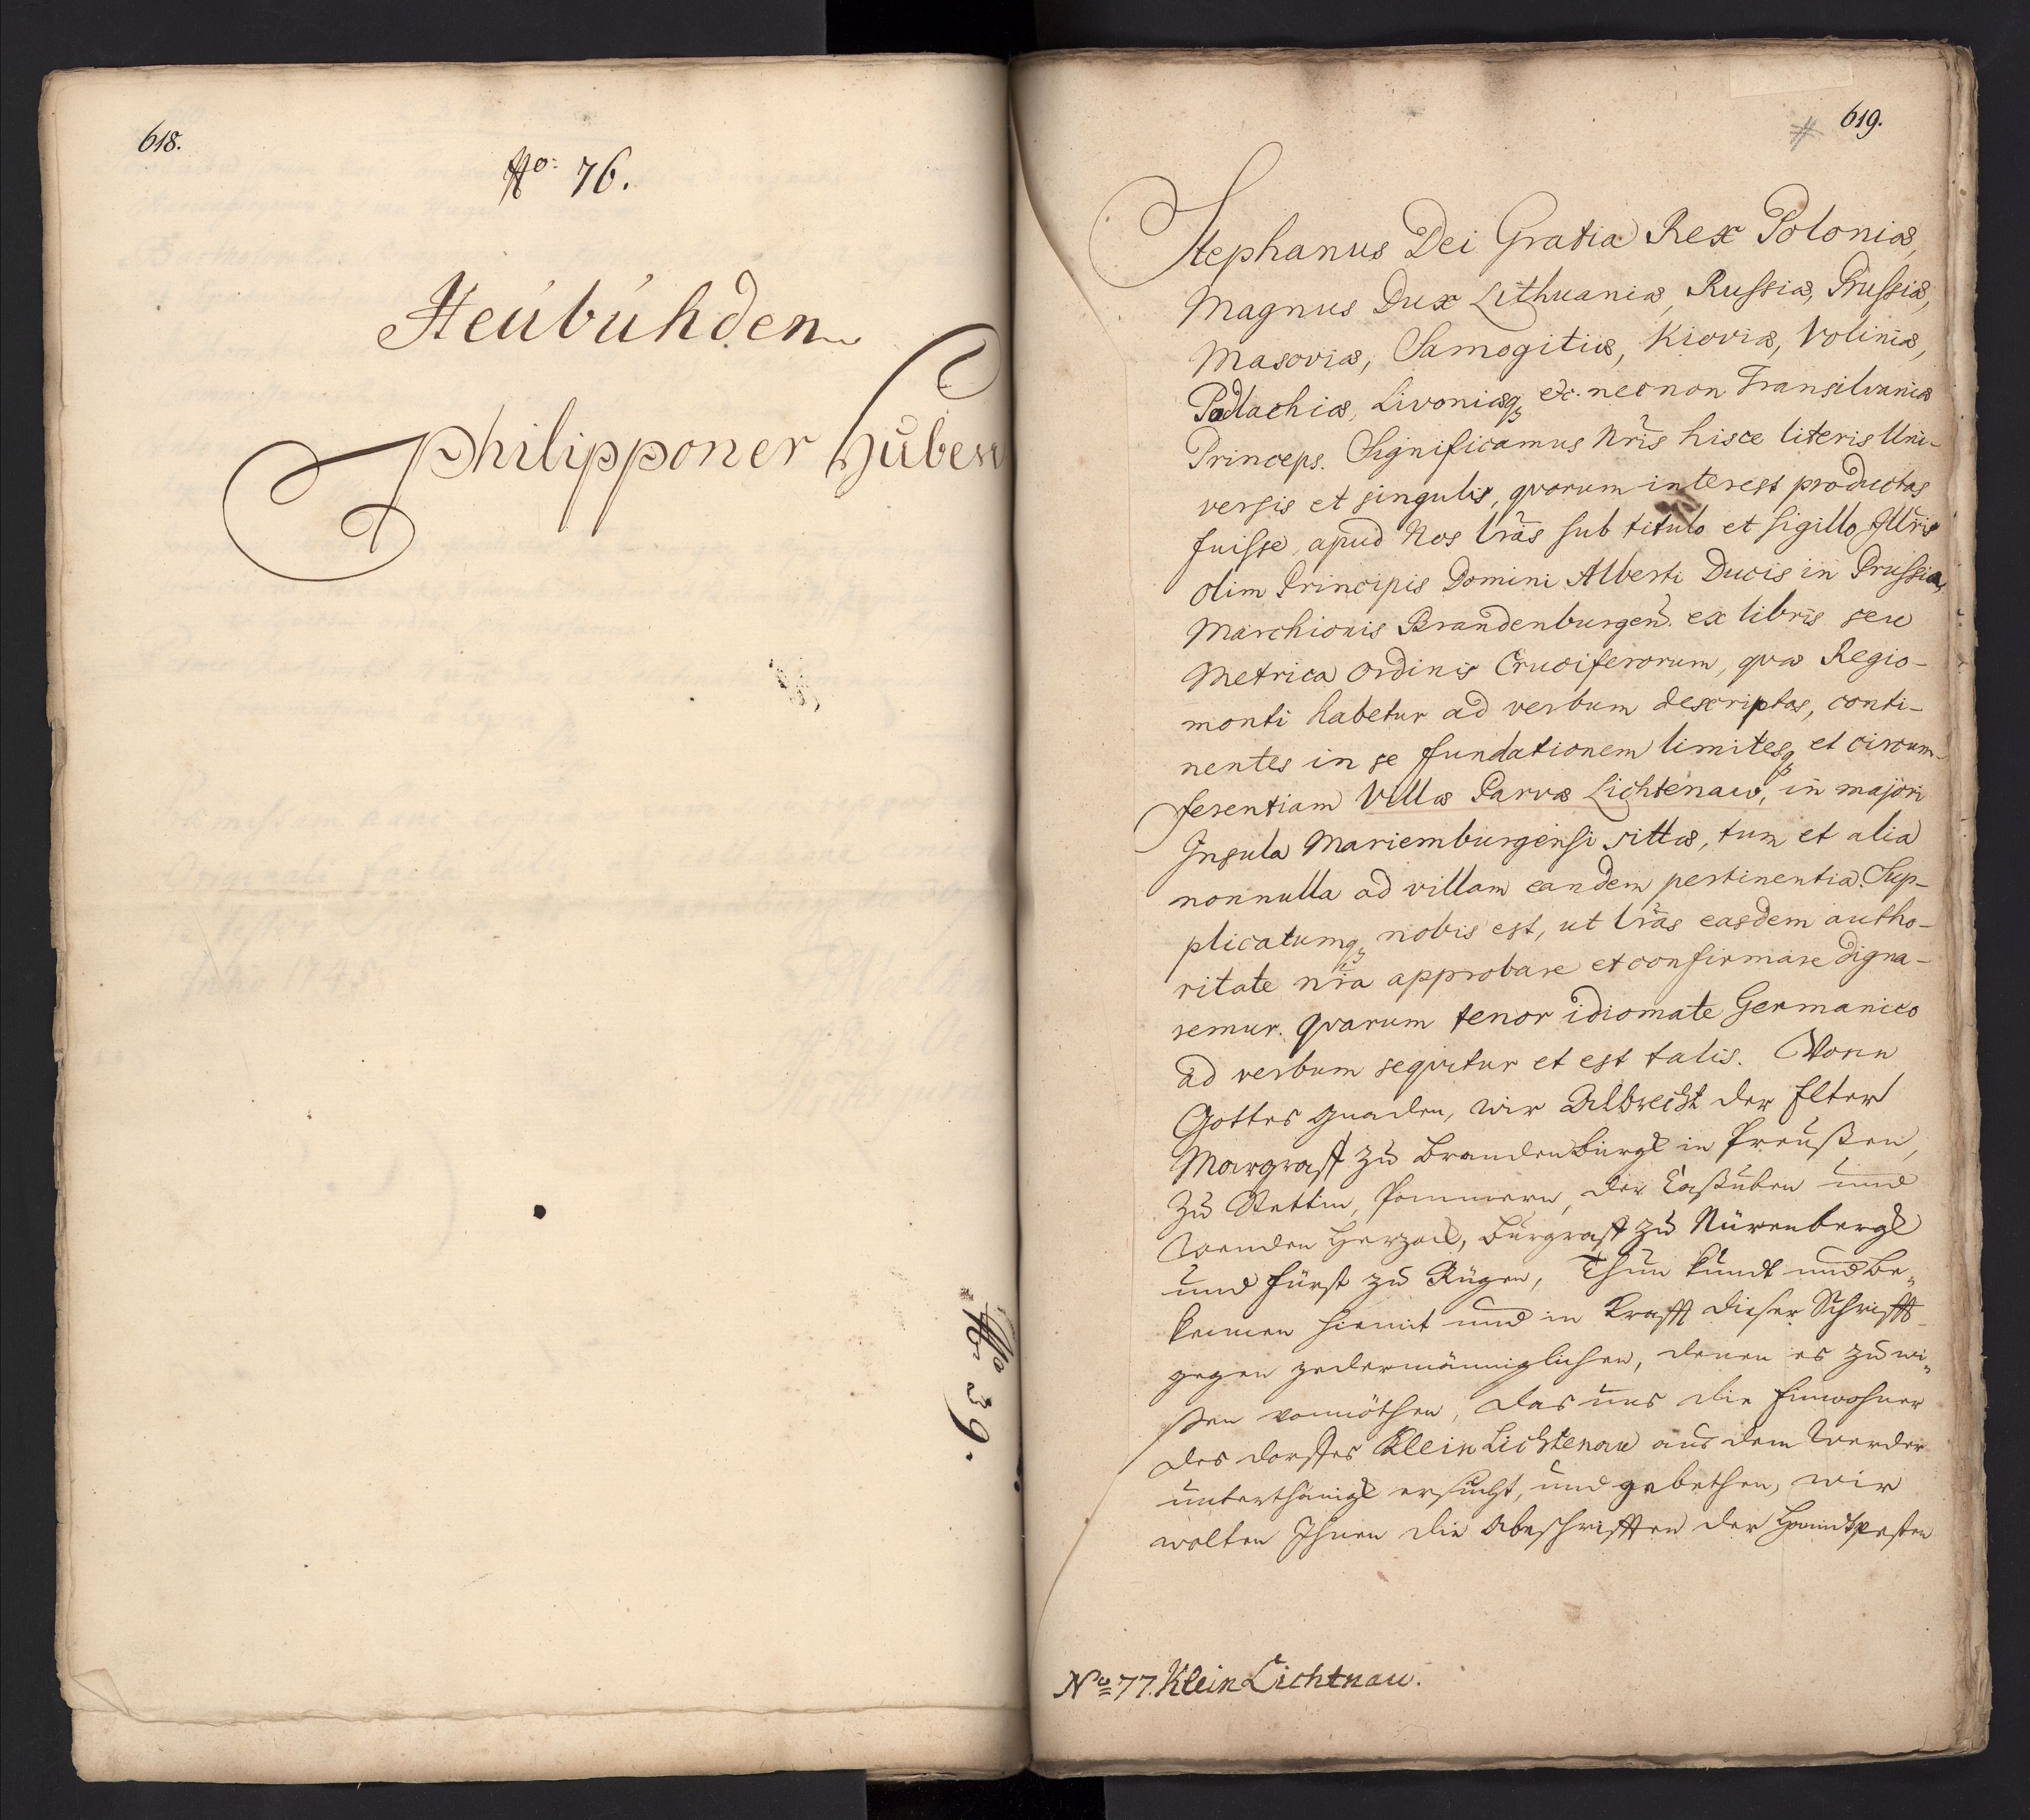 618.
No: 76.
Heúbúhden
Philipponer Hüben
No 39.
619.
Stephanus Dei Gratia Rex Poloniæ,
Magnus Dux Lithuaniæ, Russiæ, Prussiæ,
Masoviæ, Samogitiæ, Kioviæ, Voliniæ,
Podlachiæ, Livoniæq; etc. necnon Transilvaniæ
Princeps. Significamus Nris hisce literis Uni-
versis et singulis, quorum interest productas
fuisse apud Nos lras sub titulo et sigillo Illris
olim Principis Domini Alberti Ducis in Prussia,
Marchionis Brandenburgen. ex libris seu
Metrica Ordinis Cruciferorum, quæ Regio-
monti habetur ad verbum descriptas, conti-
nentes in se fundationem limitesq; et circum-
ferentiam Villæ Parvæ Lichtenaw, in majori
Insula Mariemburgensi sittæ, tum et alia
nonnulla ad villam eandem pertinentia. Sup-
plicatumq; nobis est, ut lras easdem autho-
ritate nra approbare et confirmare digna-
remur. quarum tenor idiomate Germanico
ad verbum sequitur et est talis. Vonn
Gottes gnaden, wir Albrecht der Elter
Margraff zu Brandenburgk in Preußen,
zu Stettin, Pommern, der Caßuben und
Wenden Herzock, Burgraff zu Nürenbergk
und Fürst zu Rügen, Thun kundt und be„
kennen hiemit und in Krafft dieser Schrifft
gegen yedermänniglichen, denen es zu wi„
ßen vonnöthen, das uns die Einwohner
des dorffes Klein Lichtenau aus dem Werder
unterthänigk ersucht, und gebethen, wir
wolten Ihnen die Abschrifften der Handtfesten
No 77. Klein Lichtnau.